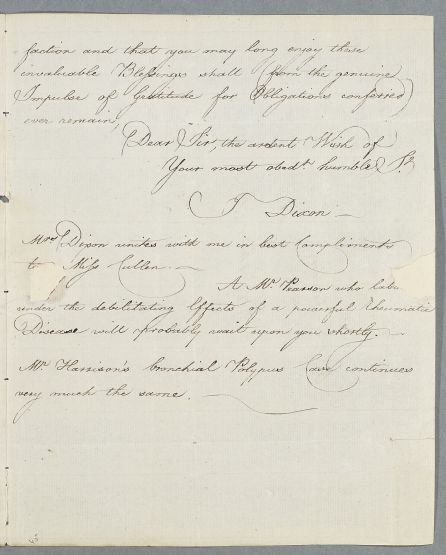 faction and that you may long enjoy these
invaluable Blessings shall (from the genuine
Impulse of Gratitude for Obligations conferred)
ever remain,
Dear Sir, the ardent Wish of
Your most obedt. humble St.
T Dixon —
Mrs Dixon unites with me in best Compliments
to Miss Cullen. —
A Mr. Pearson who labs
under the debilitating Effects of a powerful rheumatic
Disease will probably wait upon you shortly. —
Mr. Harrison's bronchial Polypus Case continues
very much the same. —